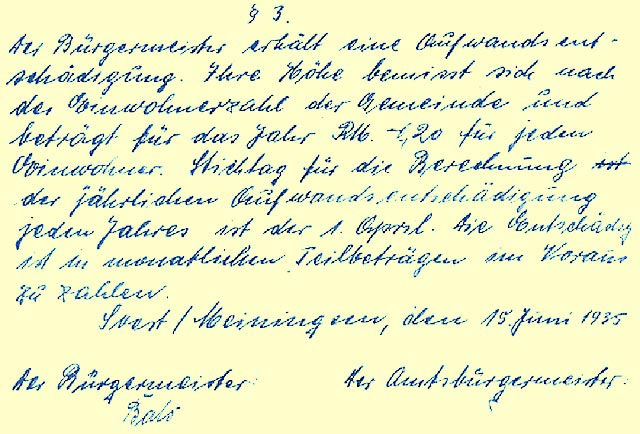 § 3.
Der Bürgermeister erhält eine Aufwandsent-
schädigung. Ihre Höhe bemisst sich nach
der Einwohnerzahl der Gemeinde und
beträgt für das Jahr RM. -,20 für jeden
Einwohner. Stichtag für die Berechnung
der jährlichen Aufwandsentschädigung
jeden Jahres ist der 1. April. Die Entschädig
ist in monatlichen Teilbeträgen im Voraus
zu zahlen.
Soest / Meiningsen, den 15. Juni 1935
Der Bürgermeister: Der Amtsbürgermeister: